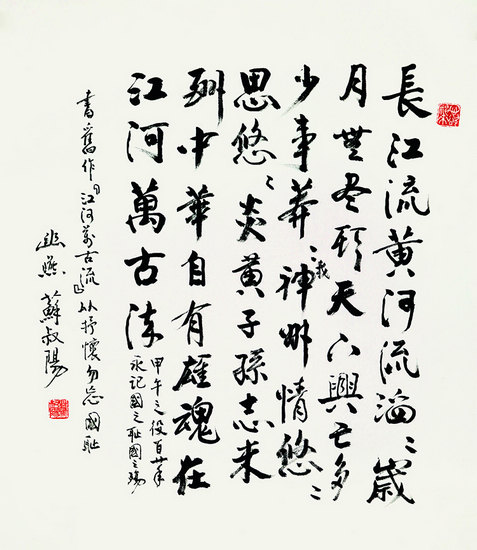 長江流黄河流滔〻歲
月無尽頭天下興亡多
少事莽〻我神州情悠〻
思悠〻炎黄子孫志未
酬中華自有雄魂在
江河萬古流
甲午之役百廿年
永記國之耻國之殤
書舊作《江河萬古流》以抒懷勿忘國耻
幽燕蘇叔陽